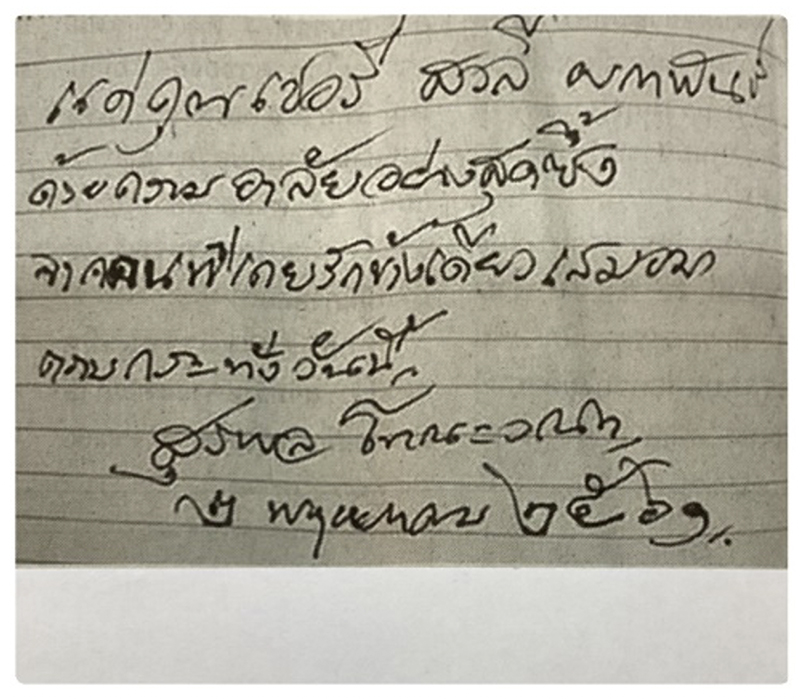 แด่คุณเชอรี่ สวลี ผกาพันธุ์
ด้วยความอาลัยอย่างสุดซึ้ง
จากคนที่เคยรักข้างเดียวเสมอมา
ตราบกระทั่งวันนี้
สุรพล โทณะวณิก
๒ พฤษภาคม ๒๕๖๑